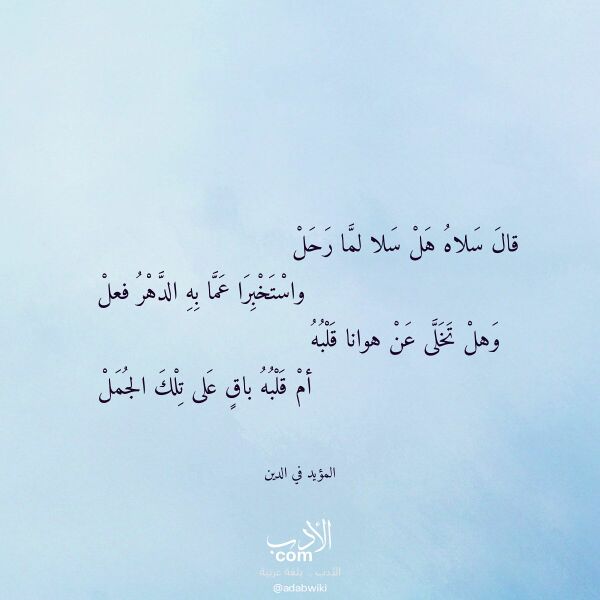 قالَ سَلاهُ هَلْ سَلا لمَّا رَحَلْ
واسْتَخْبِرَا عَمَّا بِهِ الدَّهْرُ فعلْ
وَهلْ تَخَلَّى عَنْ هوانا قَلْبُهُ
أمْ قَلْبُهُ باقٍ عَلى تِلْكَ الجُمَلْ
المؤيد في الدين
الأدب
com
الأدب .. بلغة عربية
@adabwiki